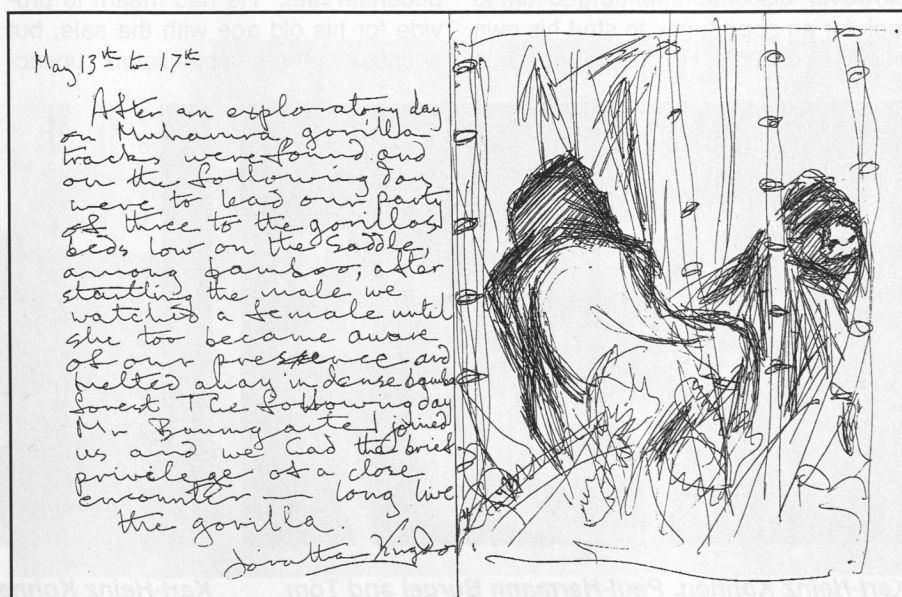 May 13th to 17th
After an exploratory day
on Muhavura gorilla
tracks were found and
on the following day
were to lead our party
of three to the gorillas
beds low on the saddle,
among bamboo; after
startling the male, we
watched a female until
she too became aware
of our presence and
melted away in dense bamboo
forest The following day
Mr Baumgartel joined
us and we had the brief
privilege of a close
encounter — long live
the gorilla.
Jonathan Kingdon
vide for his old age with the sale, but
to start his own
Karl-Heinz Kohnen, Paul-Hermann Bürgel and Tom
Karl-Heinz Kohnen